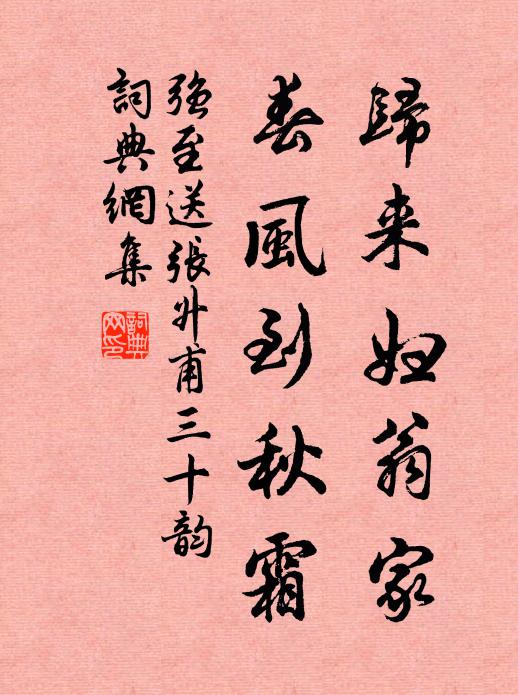 歸来婦翁家
春風到秋霜
強至送張升甫三十韵
詞典網集
詞典网印